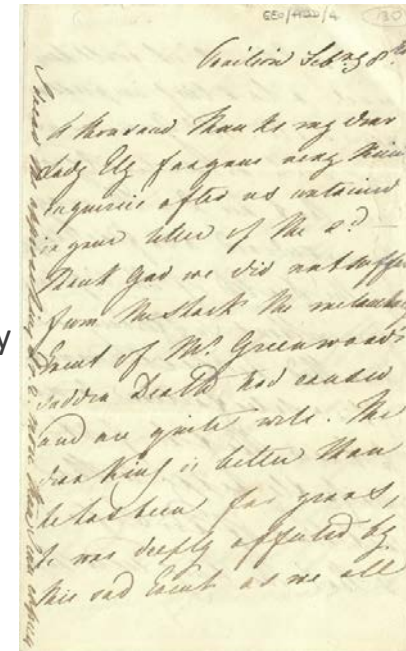 GEO/ADD/4 (130)
Pavilion Feb.ry 8th
A thousand thanks my dear
Lady Ely for your very kind
inquiries after us contained
in your letter of the 2d
thank God we did not suffer
from the shock the melancholy
Event of Mr. Greenwood's
sudden Death had caused
and are quite well. The
dear King is better than
he has been for years,
he was deeply affected by
this sad Event as we all
y